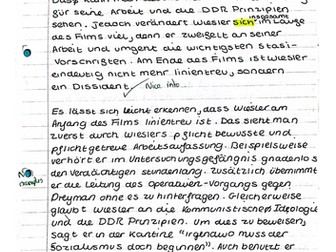 für seine Arbeit und die DDR Prinzipien
sehen. Jedoch verändert Wiesler sich insgesamt im Laufe
des Films viel, denn er zweifelt an seiner
Arbeit und umgeht die wichtigsten Stasi-
Vorschriften. Am Ende des Films ist Wiesler
eindeutig nicht mehr linientreu, sondern
ein Dissident. Nice into
Es lässt sich leicht erkennen, dass Wiesler am
Anfang des Films linientreu ist. Das sieht man
zuerst durch Wieslers pflichtbewusste und
pflichtgetreue Arbeitsauffassung. Beispielsweise
verhört er im Untersuchungsgefängnis gnadenlos
den Verdächtigen stundenlang. Zusätzlich übernimmt
er die Leitung des Operativen-Vorgangs gegen
Dreyman ohne es zu hinterfragen. Gleicherweise
glaubt Wiesler an die kommunistische Ideologie
und die DDR Prinzipien. Um dies zu beweisen,
sagt er in der Kantine "irgendwo muss der
Sozialismus doch beginnen". Auch benutzt er